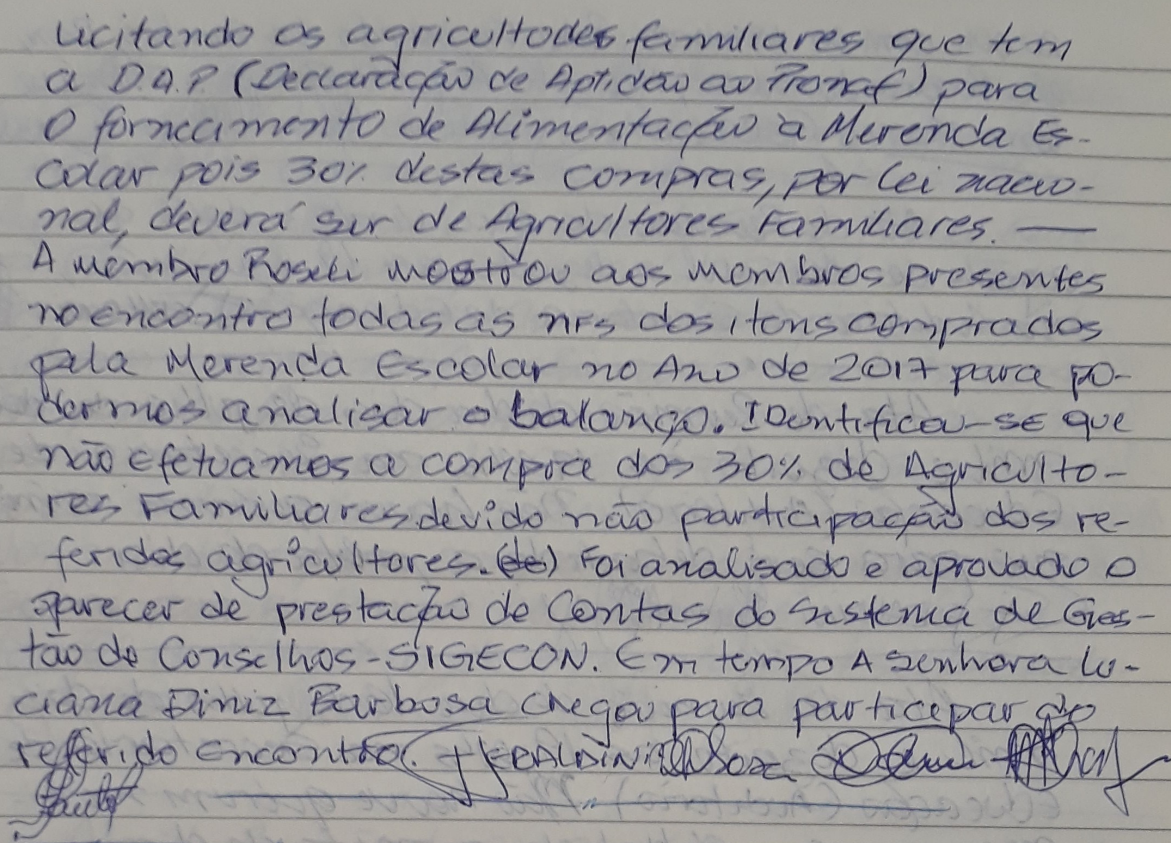 Licitando os agricultodes familiares que tem
a D.A.P (Declaração de Aptidão ao Pronaf) para
O fornecimento de Alimentação a Merenda Es-
colar pois 30% destas compras, por lei nacio-
nal, deverá ser de Agricultores Familiares. —
A membro Roseli mostrou aos membros presentes
no encontro todas as nfs dos itens comprados
pela Merenda Escolar no Ano de 2017 para po-
dermos analisar o balanço. Identificou-se que
não efetuamos a compra dos 30% de Agriculto-
res Familiares devido não participação dos re-
feridos agricultores. (de) Foi analisado e aprovado o
parecer de prestação de Contas do Sistema de Ges-
tão de Conselhos-SIGECON. Em tempo A senhora Lu-
ciana Diniz Barbosa chegou para participar do
referido encontro.